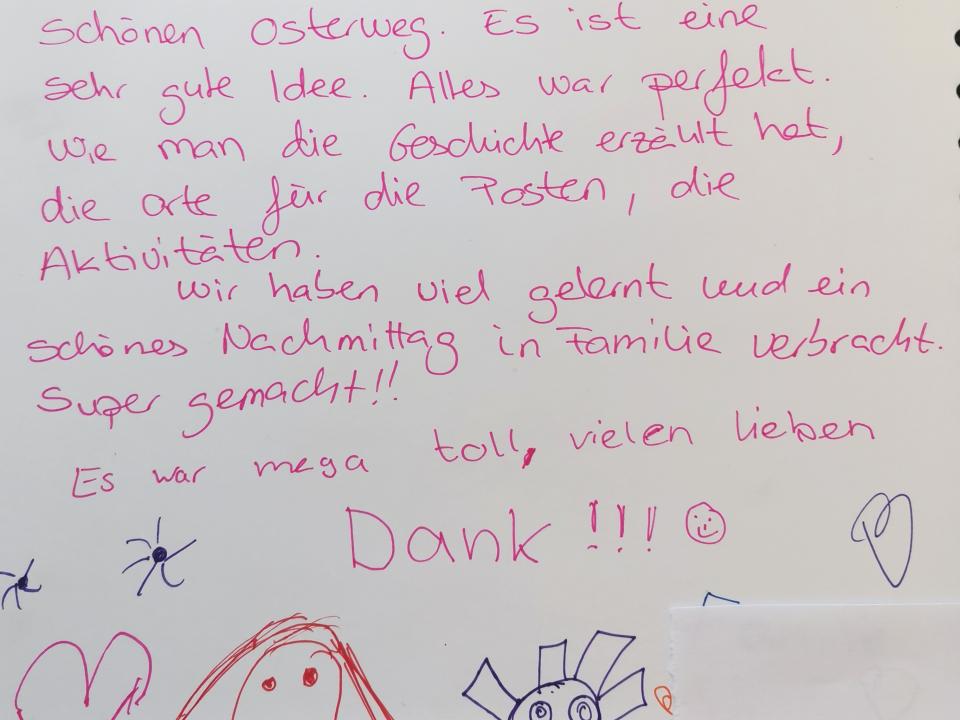 schönen Osterweg. Es ist eine
sehr gute Idee. Alles war perfekt.
Wie man die Geschichte erzählt hat,
die orte für die Posten, die
Aktivitäten.
Wir haben viel gelernt und ein
schönes Nachmittag in Familie verbracht.
Super gemacht!!
Es war mega toll, vielen lieben
Dank !!!